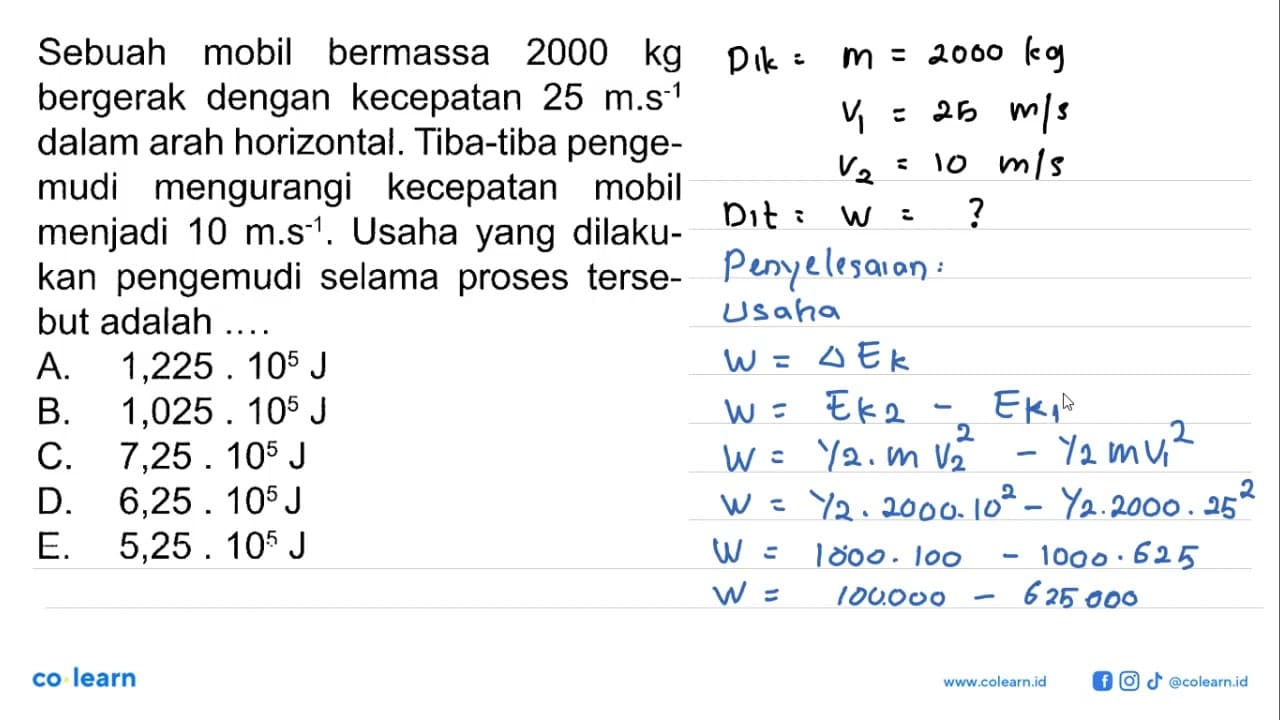 Sebuah mobil bermassa 2000 kg
bergerak dengan kecepatan 25 m.s⁻¹
dalam arah horizontal. Tiba-tiba penge-
mudi mengurangi kecepatan mobil
menjadi 10 m.s⁻¹. Usaha yang dilaku-
kan pengemudi selama proses terse-
but adalah ....
A. 1,225 . 10⁵ J
B. 1,025 . 10⁵ J
C. 7,25 . 10⁵ J
D. 6,25 . 10⁵ J
E. 5,25 . 10⁵ J
Dik : m = 2000 kg
V₁ = 25 m/s
V₂ = 10 m/s
Dit : W = ?
Penyelesaian :
Usaha
W = Δ Ek
W = Ek₂ - Ek₁
W = 1/2 . m V₂² - 1/2 m V₁²
W = 1/2 . 2000 . 10² - 1/2 . 2000 . 25²
W = 1000 . 100 - 1000 . 625
W = 100.000 - 625 000
co learn
www.colearn.id
@colearn.id